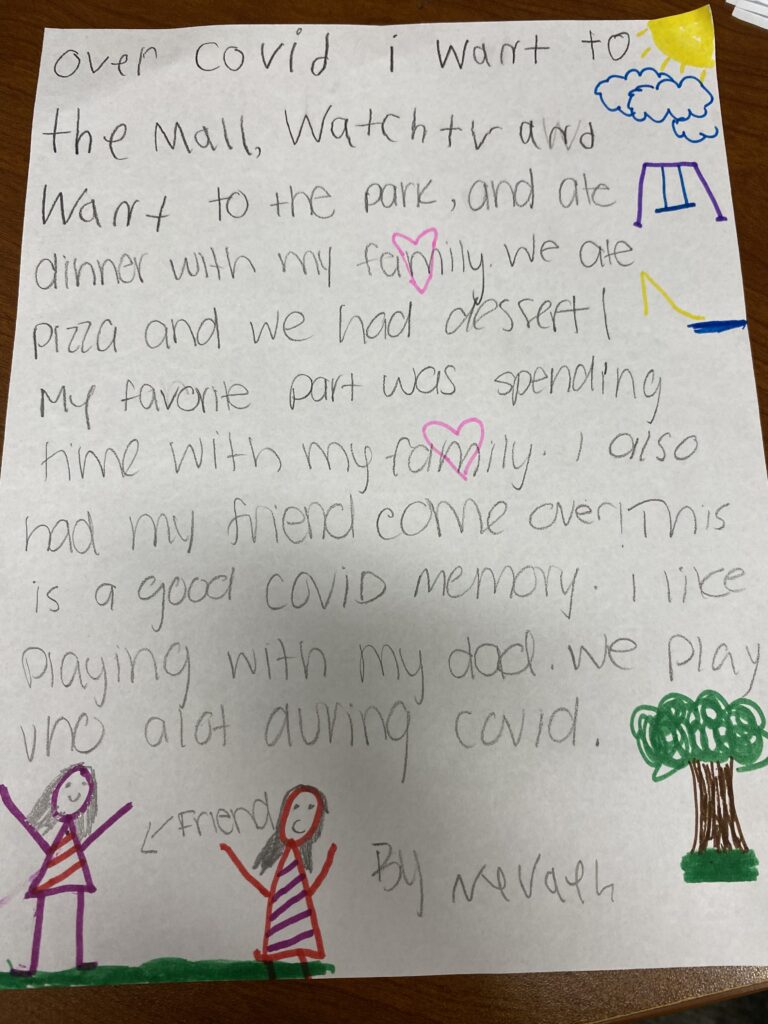 over covid i want to
the Mall, Watch tv and
Want to the park, and ate
dinner with my family. We ate
pizza and we had dessert!
My favorite part was spending
time with my family. I also
had my friend come over! This
is a good covid memory. i like
playing with my dad. We play
uno alot during covid.
Friend
By Nevaeh